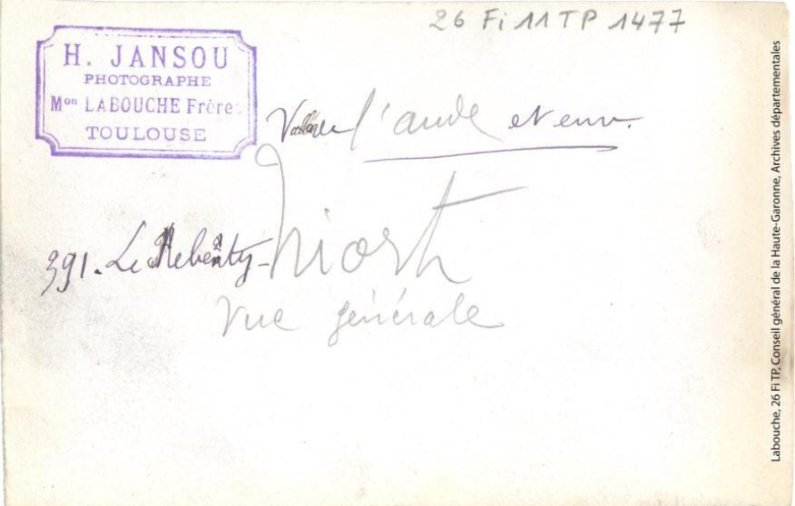 26 Fi 11 TP 1477
H. JANSOU
PHOTOGRAPHE
Mon LABOUCHE Frères
TOULOUSE
l'aude et env.
391. Le Rebenty - Niort
Vue générale
Labouche, 26 Fi TP, Conseil général de la Haute-Garonne, Archives départementales